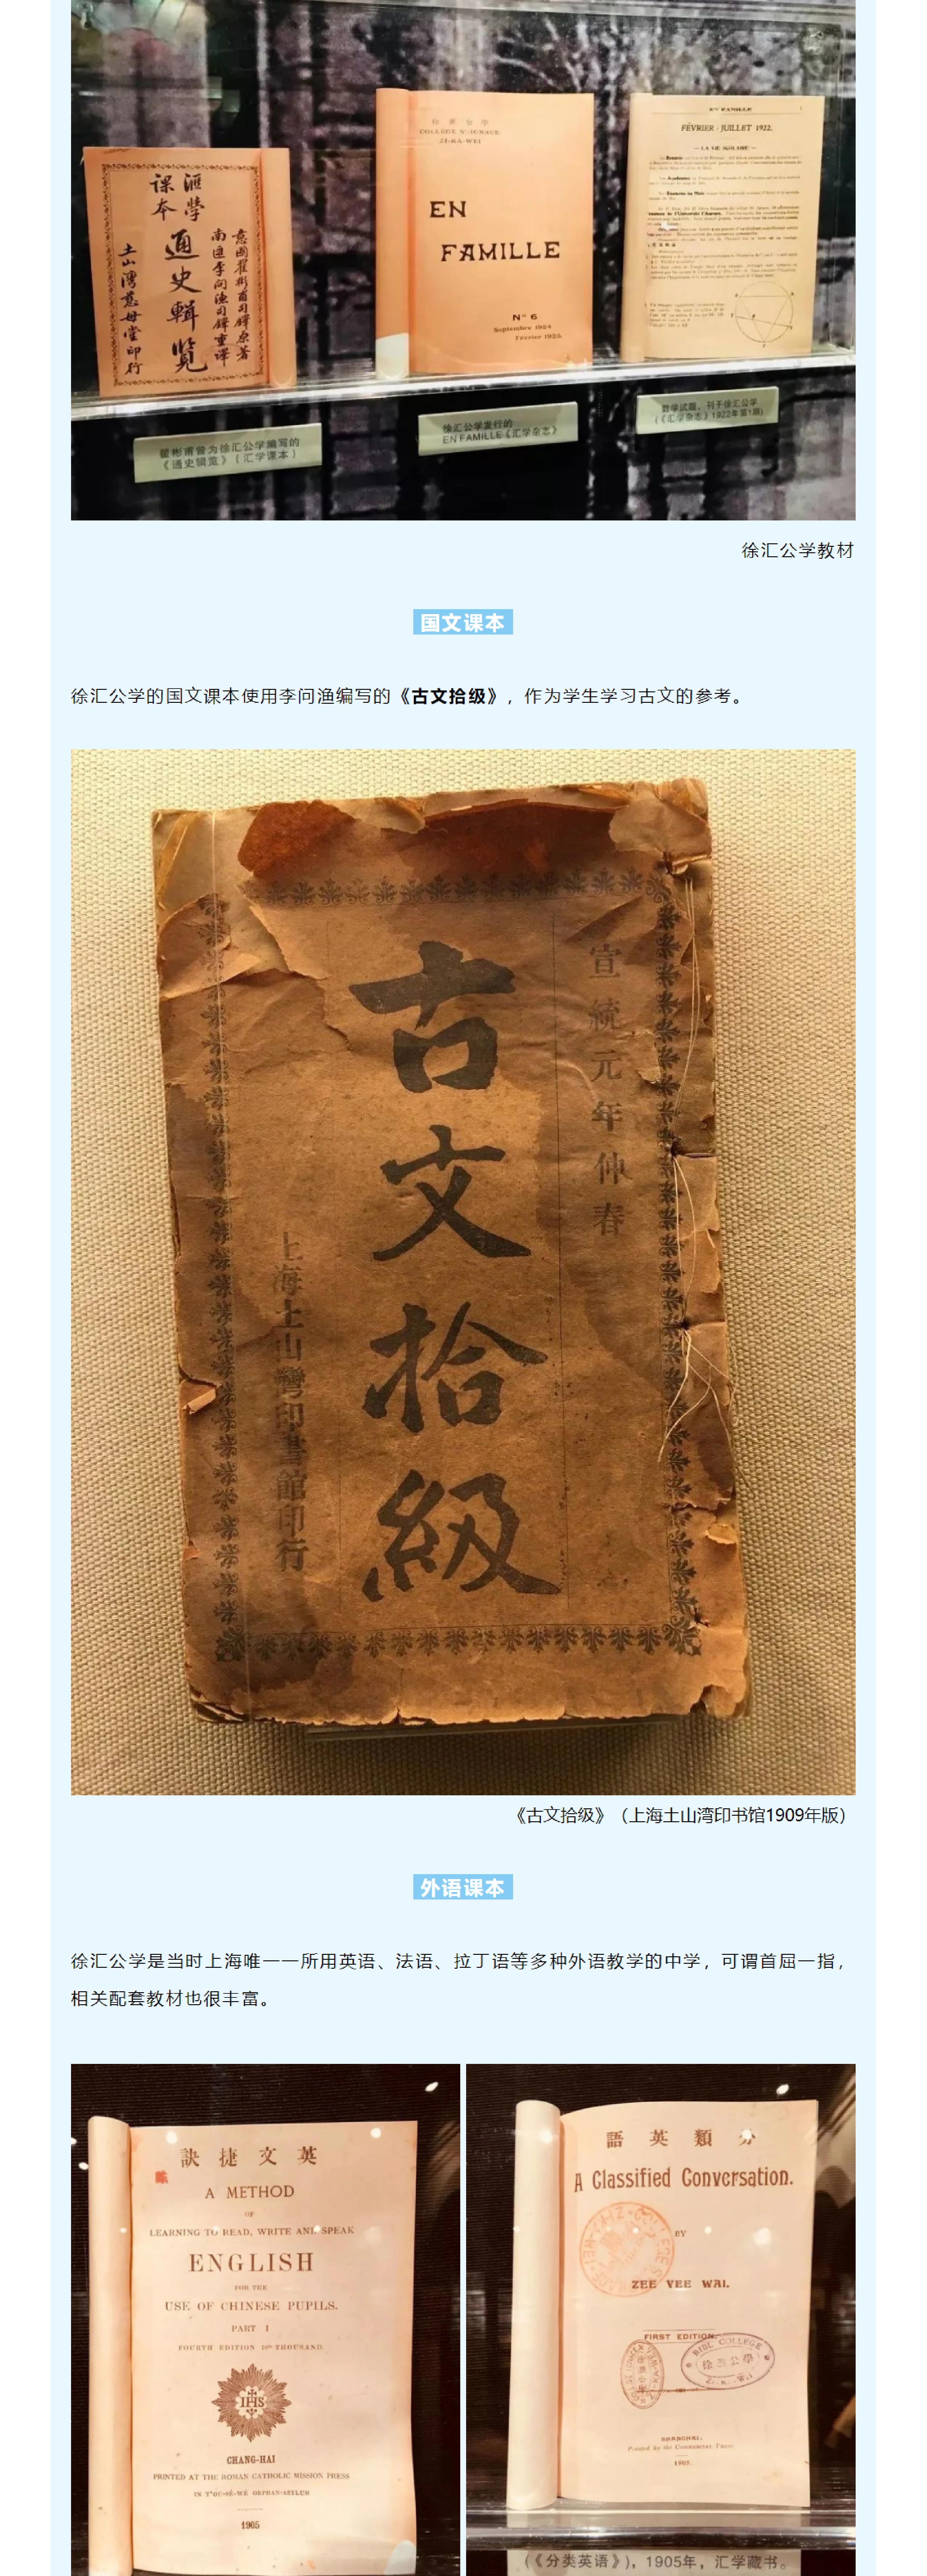 匯學
課本
意國翟彬甫司鐸原著
南匯李問漁司鐸重譯
通史輯覽
土山灣慈母堂印行
徐匯公學
COLLÈGE St IGNACE
ZI-KA-WEI
EN
FAMILLE
N° 6
Septembre 1924
Février 1925
EN FAMILLE
FÉVRIER - JUILLET 1922.
— LA VIE SCOLAIRE —
翟彬甫曾为徐汇公学编写的
《通史辑览》（汇学课本）
徐汇公学发行的
EN FAMILLE《汇学杂志》
数学试题，刊于徐汇公学
（《汇学杂志》1922年第1期）
徐汇公学教材
国文课本
徐汇公学的国文课本使用李问渔编写的《古文拾级》，作为学生学习古文的参考。
宣統元年仲春
古文拾級
上海土山灣印書館印行
《古文拾级》（上海土山湾印书馆1909年版）
外语课本
徐汇公学是当时上海唯一一所用英语、法语、拉丁语等多种外语教学的中学，可谓首屈一指，
相关配套教材也很丰富。
訣捷文英
A METHOD
OF
LEARNING TO READ, WRITE AND SPEAK
ENGLISH
FOR THE
USE OF CHINESE PUPILS.
PART I
FOURTH EDITION 10th THOUSAND
IHS
CHANG-HAI
PRINTED AT THE ROMAN CATHOLIC MISSION PRESS
IN T'OU-SÈ-WÈ ORPHAN-ASYLUM
1905
語英類分
A Classified Conversation.
BY
ZEE VEE WAI.
FIRST EDITION.
BIBL COLLEGE
徐匯公學
SHANGHAI:
Printed by the Commercial Press
1905.
（《分类英语》），1905年，汇学藏书。